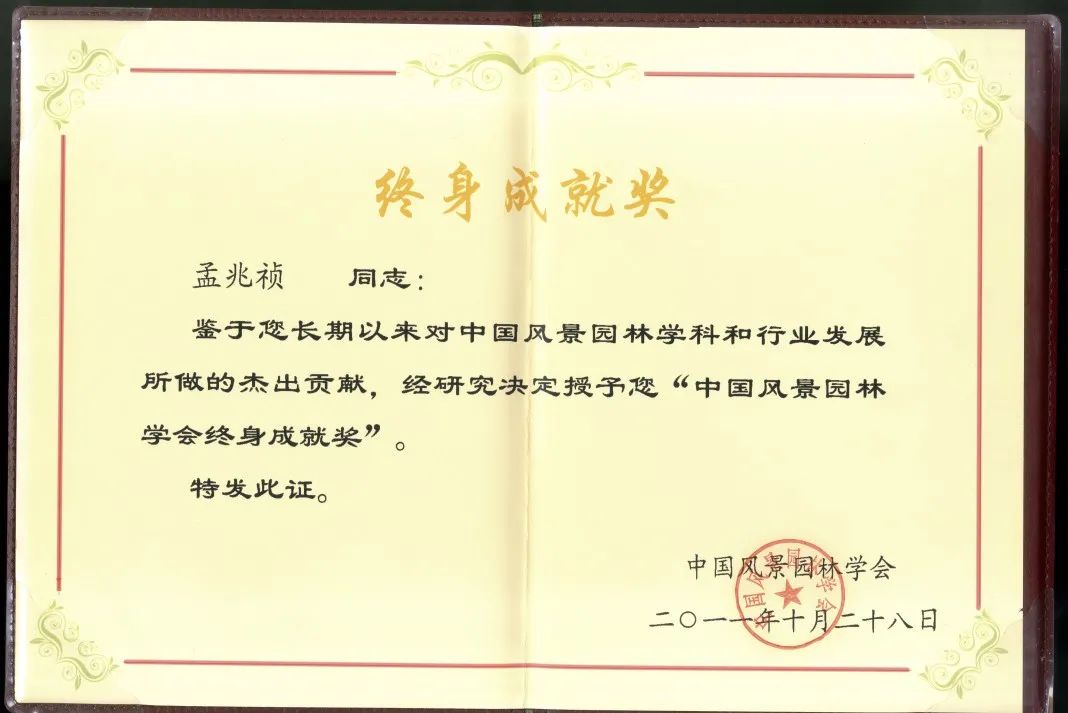 终身成就奖
孟兆祯 同志：
鉴于您长期以来对中国风景园林学科和行业发展
所做的杰出贡献，经研究决定授予您“中国风景园林
学会终身成就奖”。
特发此证。
中国风景园林学会
二〇一一年十月二十八日
中国风景园林学会